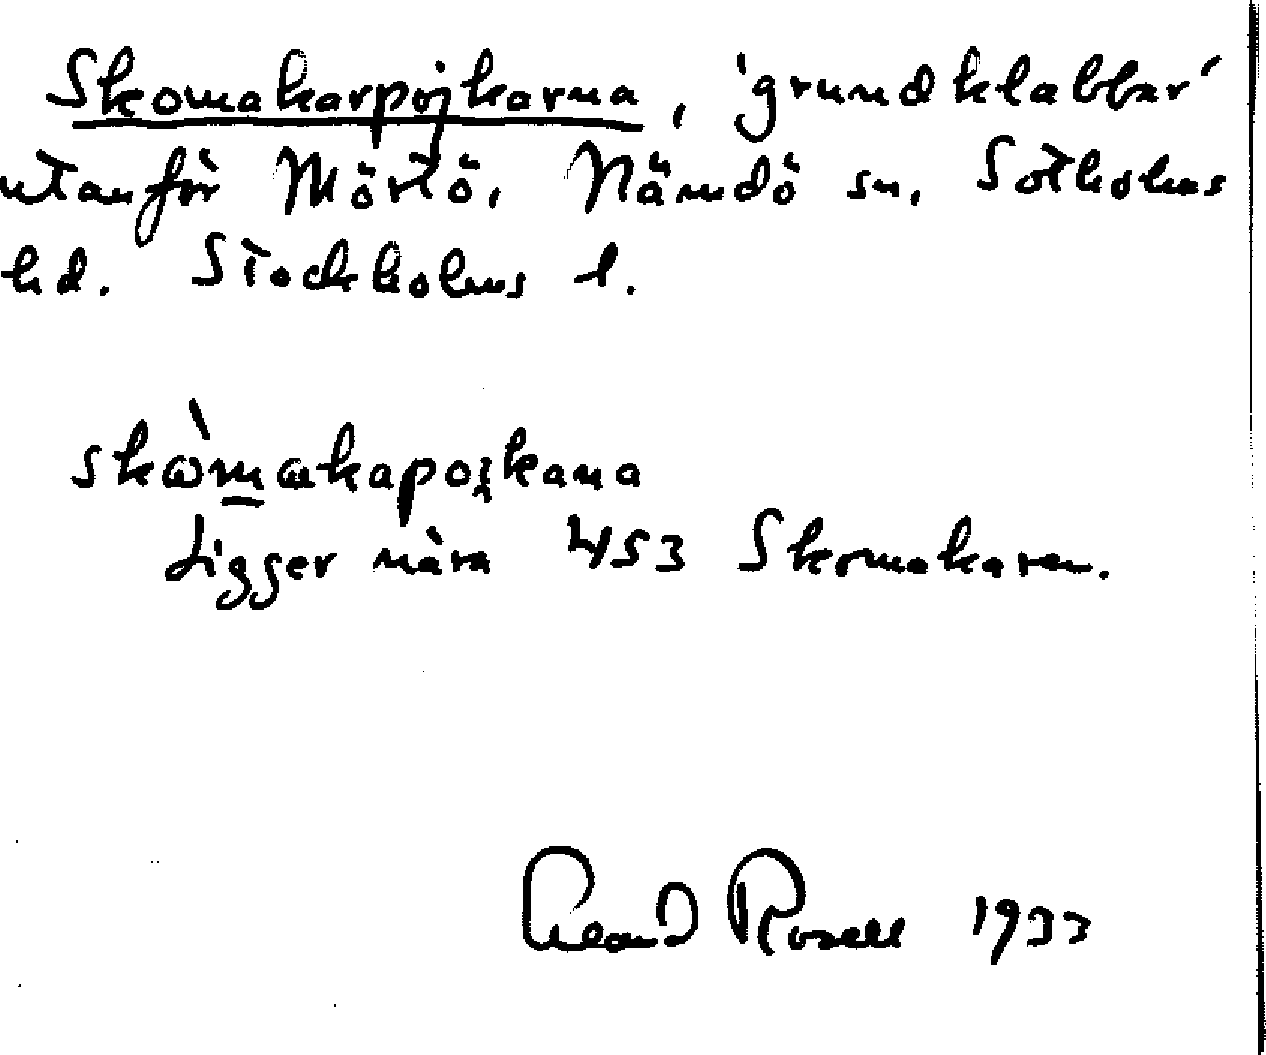 Skomakarpojkarna, 'grundklabbar'
utanför Mörtö, Nämdö sn, Sotholms
hd. Stockholms l.
skömakapojkana
Ligger nära 453 Skomakaren.
Rosell 1933